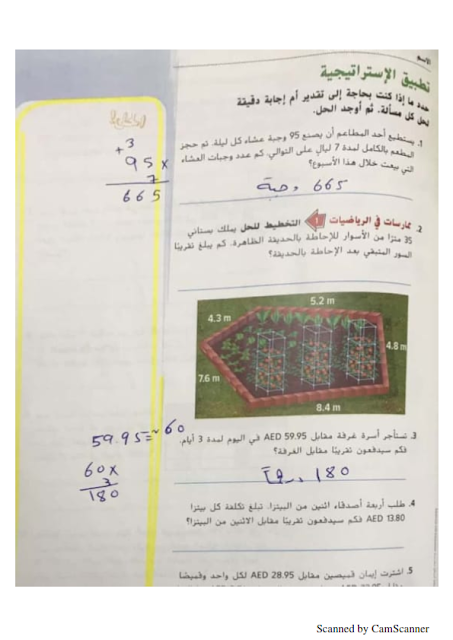 الاسم
تطبيق الإستراتيجية
حدد ما إذا كنت بحاجة إلى تقدير أم إجابة دقيقة
لحل كل مسألة. ثم أوجد الحل.
1. يستطيع أحد المطاعم أن يصنع 95 وجبة عشاء كل ليلة. تم حجز
المطعم بالكامل لمدة 7 ليالٍ على التوالي. كم عدد وجبات العشاء
التي بيعت خلال هذا الأسبوع؟
665 وجبة
+3
95 x
7
665
2. ممارسات في الرياضيات 1 التخطيط للحل يملك بستاني
35 مترًا من الأسوار للإحاطة بالحديقة الظاهرة. كم يبلغ تقريبًا
السور المتبقي بعد الإحاطة بالحديقة؟
5.2 m
4.3 m
4.8 m
7.6 m
8.4 m
3. تستأجر أسرة غرفة مقابل AED 59.95 في اليوم لمدة 3 أيام.
فكم سيدفعون تقريبًا مقابل الغرفة؟
180
59.95 = ~ 60
60 x
3
180
4. طلب أربعة أصدقاء اثنين من البيتزا. تبلغ تكلفة كل بيتزا
AED 13.80 فكم سيدفعون تقريبًا مقابل الاثنين من البيتزا؟
5. اشترت إيمان قميصين مقابل AED 28.95 لكل واحد وقميصًا
Scanned by CamScanner